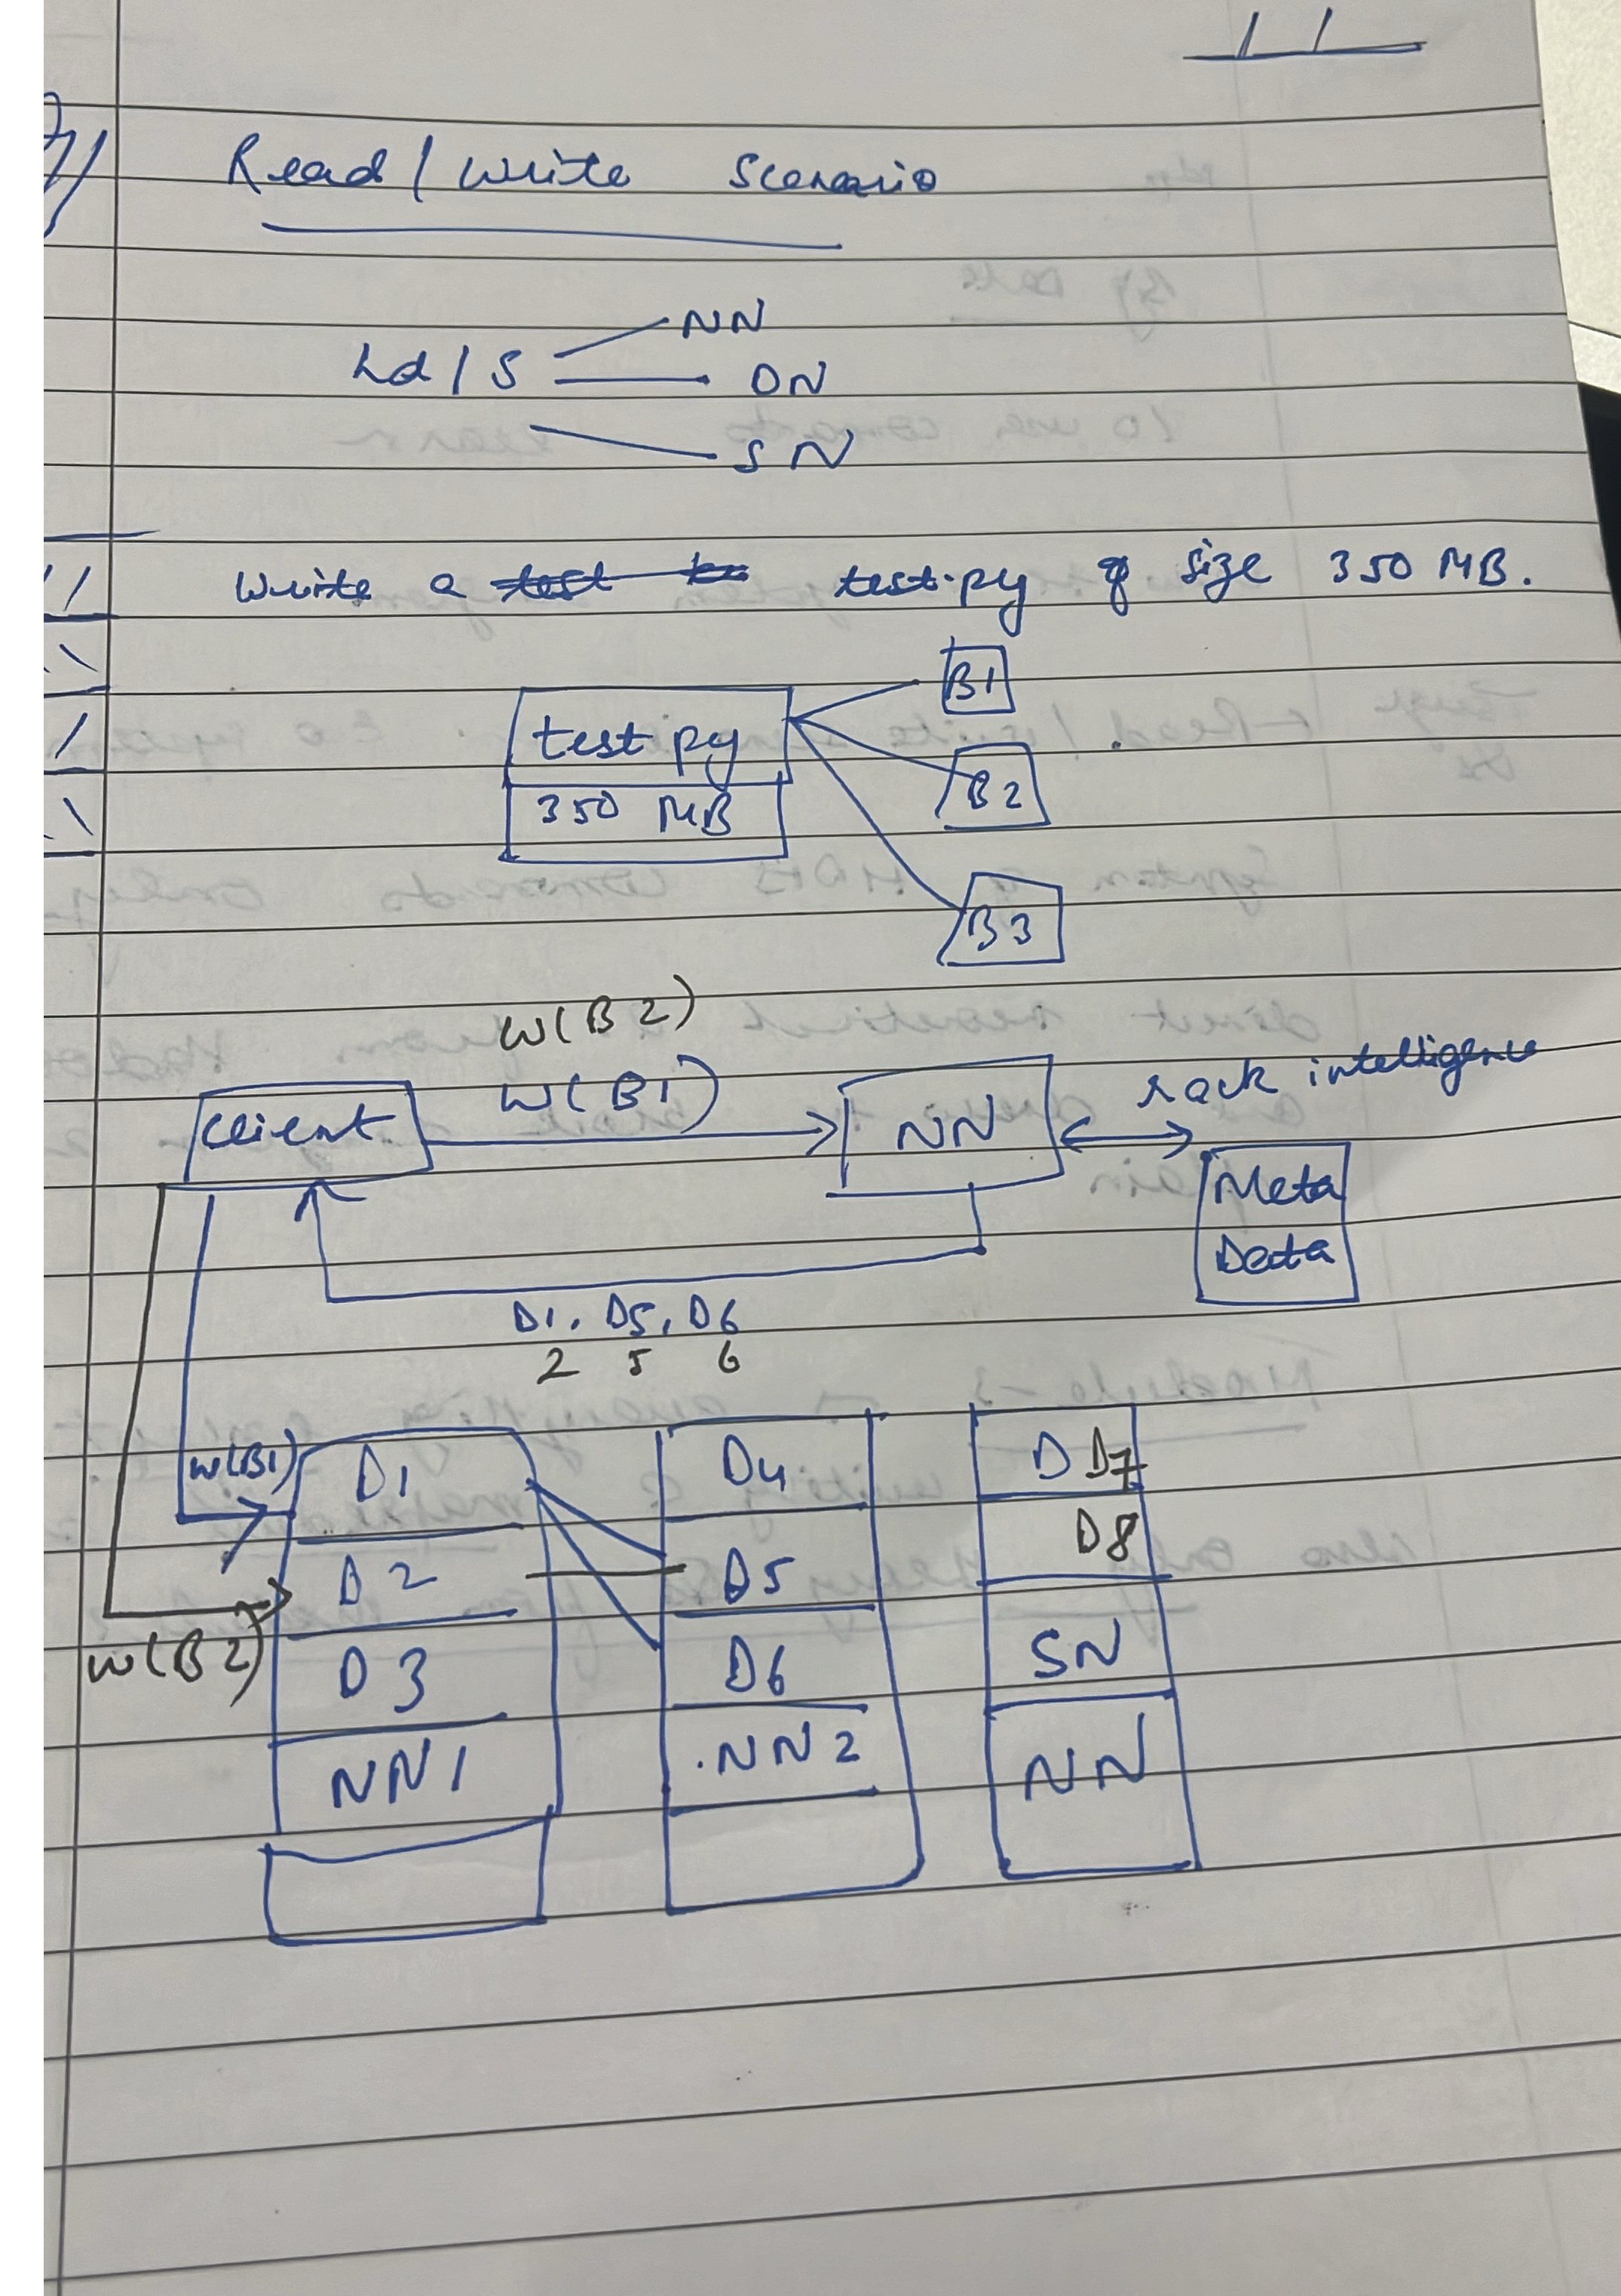 Read / Write Scenario
NN
hd / S DN
SN
Write a test test.py of size 350 MB.
B1
test py
B2
350 MB
B3
W(B2)
W(B1) rack intelligence
client NN
Meta
Data
D1, D5, D6
2 5 6
W(B1) D1 D4 D D7
D2 D5 D8
W(B2) D3 D6 SN
NN1 .NN2 NN